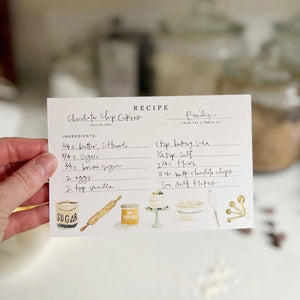 RECIPE
Chocolate Chip Cookies
Emily
RECIPE FOR
FROM THE KITCHEN OF
INGREDIENTS:
3/4 c butter, softened
3/4 c sugar
3/4 c brown sugar
2 eggs
2 tsp vanilla
1 tsp baking soda
1/2 tsp salt
2 1/4 c flour
milk chocolate chips
Sea salt flakes
SUGAR
HONEY